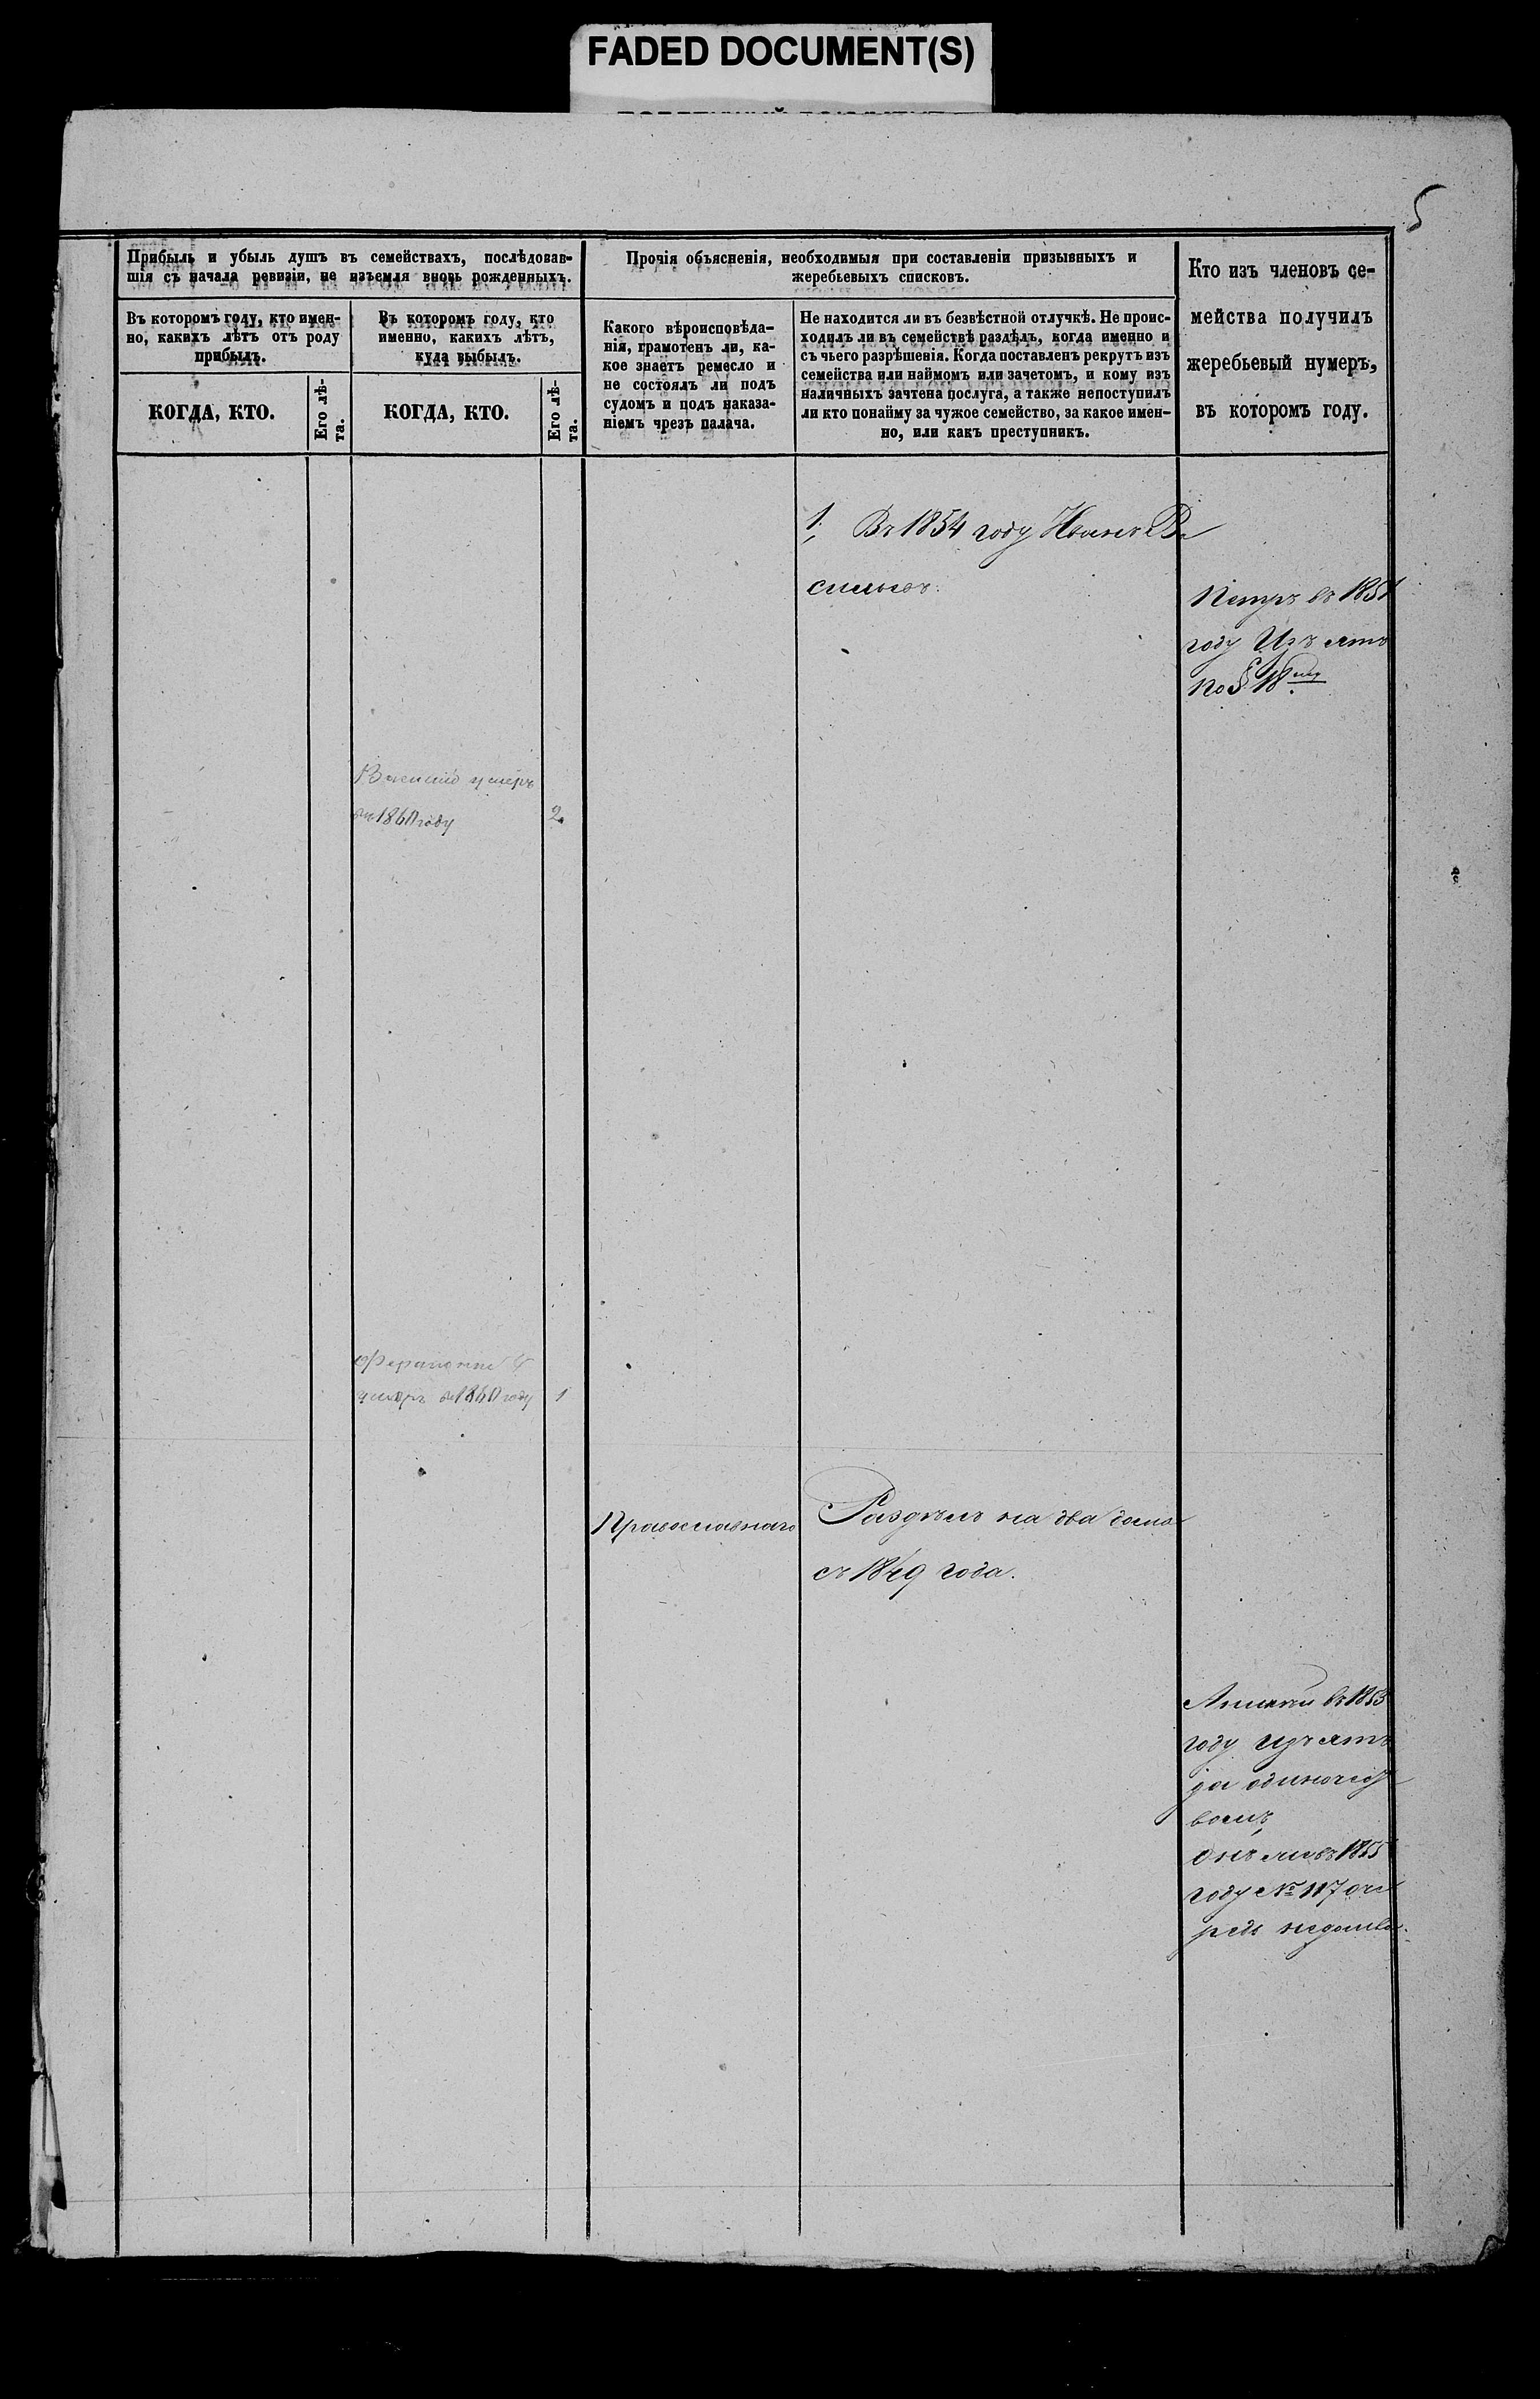 FADED DOCUMENT(S)
5
Прибыль и убыль душъ въ семействахъ, послѣдовав-
шія съ начала ревизіи, не изъемля вновь рожденныхъ.
Въ которомъ году, кто имен-
но, какихъ лѣтъ отъ роду
прибылъ.
КОГДА, КТО.
Его лѣ-
та.
Въ которомъ году, кто
именно, какихъ лѣтъ,
куда выбылъ.
КОГДА, КТО.
Его лѣ-
та.
Прочія объясненія, необходимыя при составленіи призывныхъ и
жеребьевыхъ списковъ.
Какого вѣроисповѣда-
нія, грамотенъ ли, ка-
кое знаетъ ремесло и
не состоялъ ли подъ
судомъ и подъ наказа-
ніемъ чрезъ палача.
Не находится ли въ безвѣстной отлучкѣ. Не проис-
ходилъ ли въ семействѣ раздѣлъ, когда именно и
съ чьего разрѣшенія. Когда поставленъ рекрутъ изъ
семейства или наймомъ или зачетомъ, и кому изъ
наличныхъ зачтена послуга, а также непоступилъ
ли кто понайму за чужое семейство, за какое имен-
но, или какъ преступникъ.
Кто изъ членовъ се-
мейства получилъ
жеребьевый нумеръ,
въ которомъ году.
1, Въ 1854 году Иванъ Ва
сильевъ.
Петръ въ 1851
году Изъятъ
по § 18
Василій умеръ
въ 1860 году 2
умеръ въ 1860 году 1
Православнаго
Раздѣлъ на два дома
съ 1849 года.
въ 1853
году изъятъ
за одиночест
вомъ,
онъ же въ 1855
году № 117 оче
редь недошла.